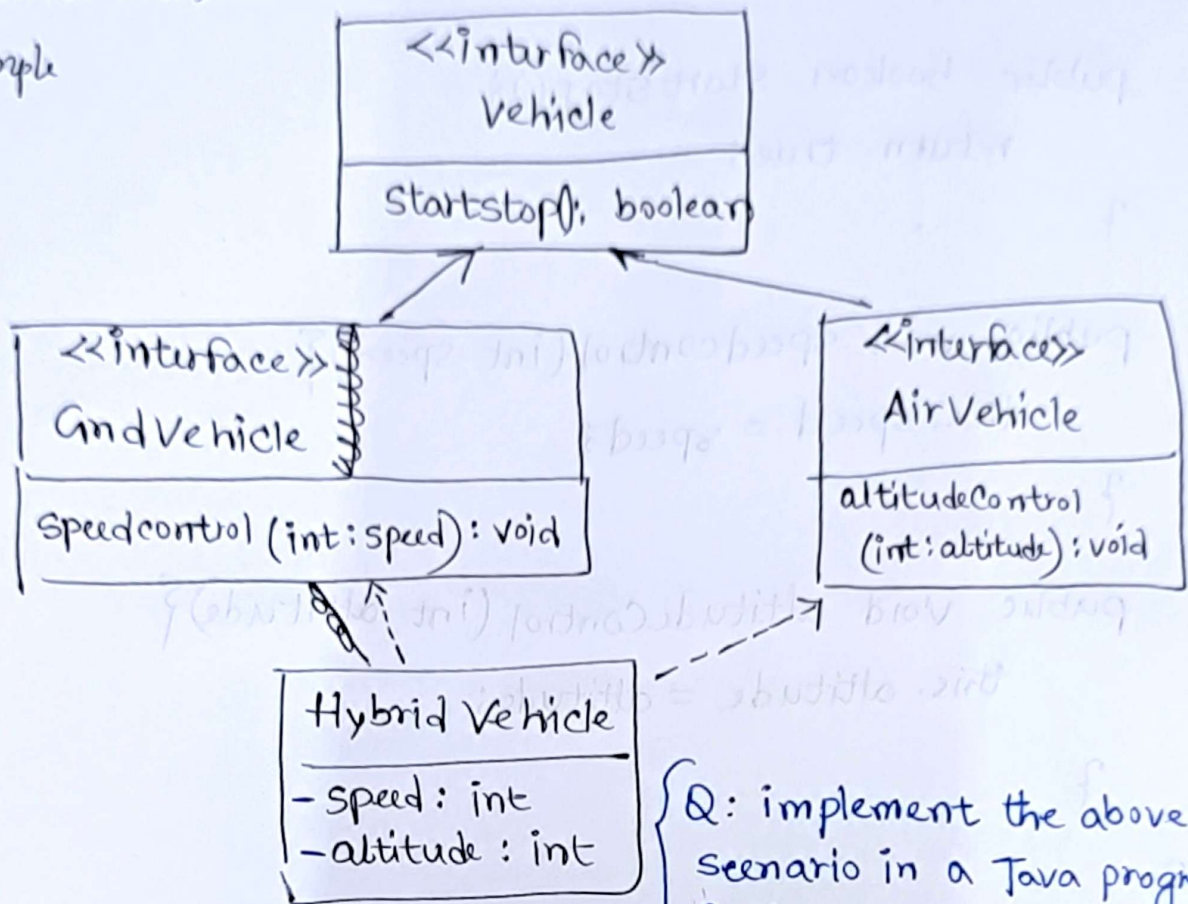 <<interface>>
Vehicle
startstop(): boolean
<<interface>>
GndVehicle
speedcontrol (int: speed): void
<<interface>>
AirVehicle
altitudeControl
(int: altitude): void
Hybrid Vehicle
- speed: int
- altitude: int
Q: implement the above
scenario in a Java